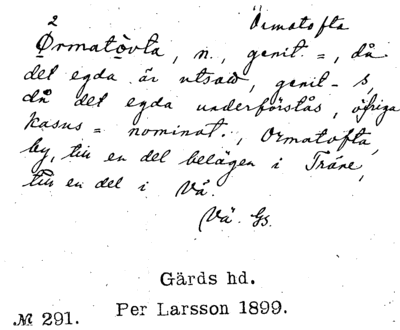 2 Ormatofta
Ørmatòvta, n., genit. =, då
det egda är utsatt, genit. - s,
då det egda underförstås, öfriga
kasus = nominat., Ormatofta,
by, till en del belägen i Träne,
till en del i Vä.
Vä. Gs.
Gärds hd.
№ 291. Per Larsson 1899.